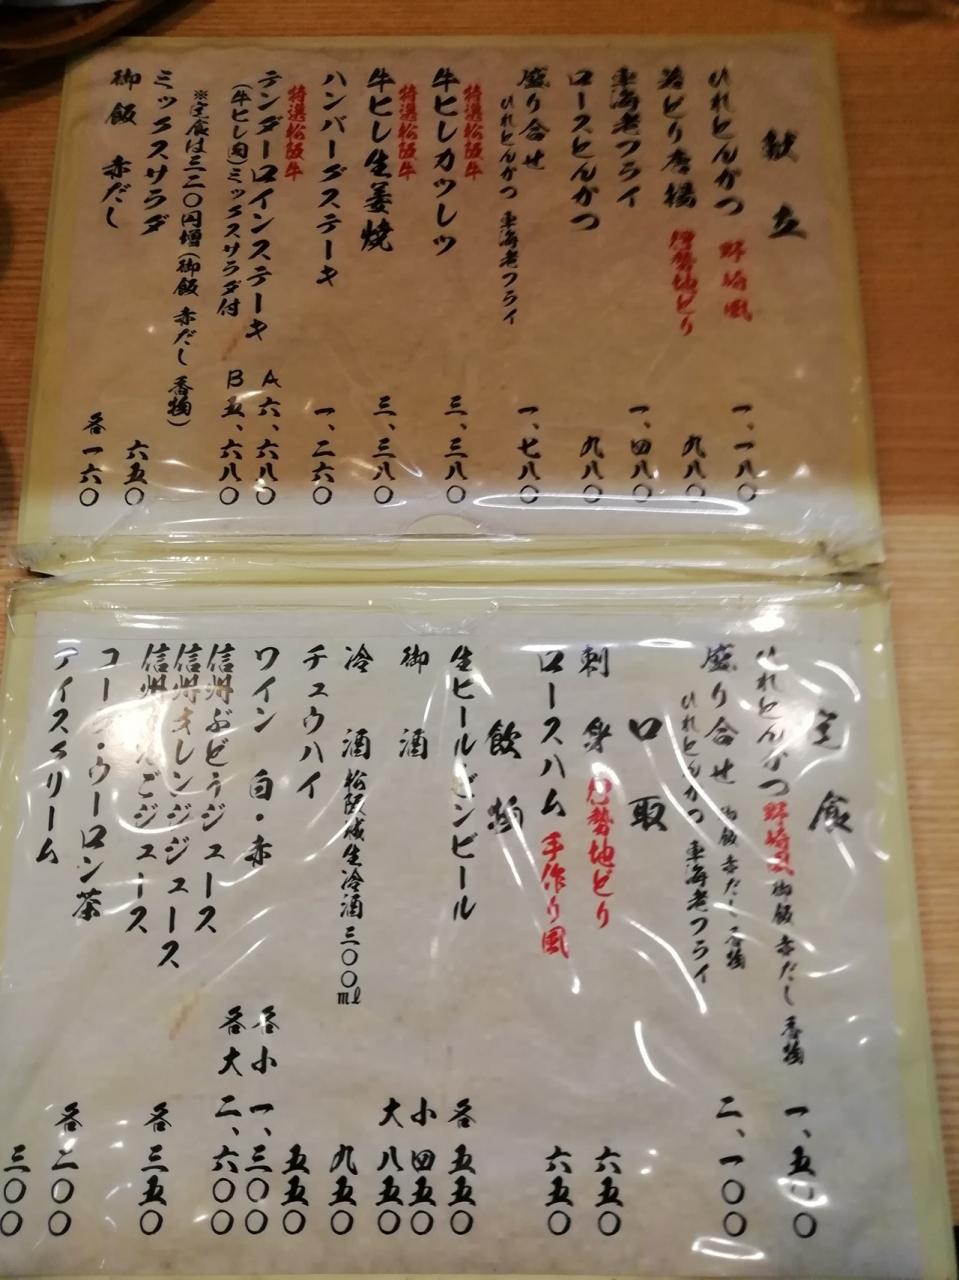 献立
ひれとんかつ 野崎風 一、一八〇
若どり唐揚 伊勢地どり 九八〇
車海老フライ 一、四八〇
ロースとんかつ 九八〇
盛り合せ 一、七八〇
ひれとんかつ 車海老フライ
特選松阪牛
牛ヒレカツレツ 三、三八〇
特選松阪牛
牛ヒレ生姜焼 三、三八〇
ハンバーグステーキ 一、二六〇
特選松阪牛
テンダーロインステーキ A 六、六八〇
(牛ヒレ肉)ミックスサラダ付 B 五、六八〇
※定食は三二〇円増(御飯 赤だし 香物)
ミックスサラダ 六五〇
御飯 赤だし 各一六〇
定食
ひれとんかつ 野崎風 御飯 赤だし 香物 一、五〇〇
盛り合せ 御飯 赤だし 香物 二、一〇〇
ひれとんかつ 車海老フライ
口取
刺身 伊勢地どり 六五〇
ロースハム 手作り風 六五〇
飲物
生ビール・ビンビール 各五五〇
御酒 小 四五〇
大 八五〇
冷酒 松阪城生冷酒 三〇〇ml 九五〇
チュウハイ 五五〇
ワイン 白・赤 各小 一、三〇〇
各大 二、六〇〇
信州ぶどうジュース
信州オレンジジュース
信州りんごジュース 各三五〇
コーラ・ウーロン茶 各二〇〇
アイスクリーム 三〇〇